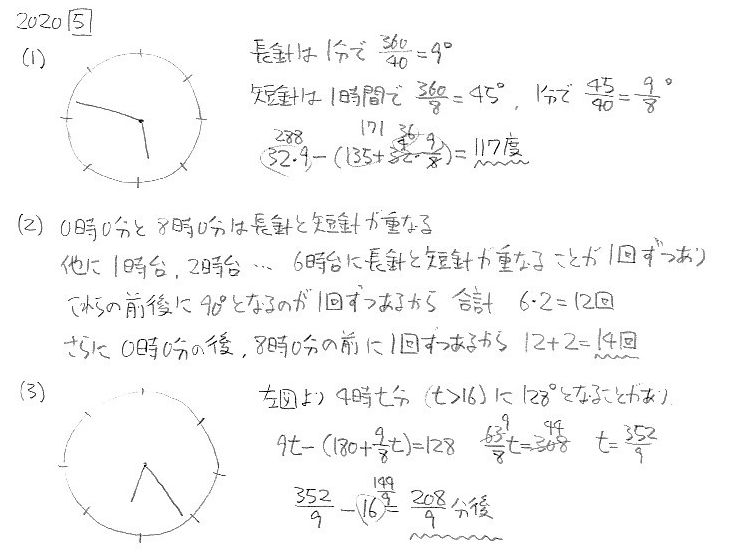 2020 5
(1)
長針は 1分で 360/40 = 9°
短針は 1時間で 360/8 = 45°, 1分で 45/40 = 9/8°
288 171 36 4
32・9 − (135 + 32・9/8) = 117度
(2) 0時0分と 8時0分は長針と短針が重なる
他に 1時台, 2時台 … 6時台に長針と短針が重なることが 1回ずつあり
これらの前後に 90°となるのが 1回ずつあるから 合計 6・2 = 12回
さらに 0時0分の後, 8時0分の前に 1回ずつあるから 12+2 = 14回
(3)
左図より 4時t分 (t>16) に 128°となることがあり
9t − (180 + 9/8 t) = 128 63/8 t = 308 9 44 t = 352/9
352/9 − 16 = 208/9 分後 144/9